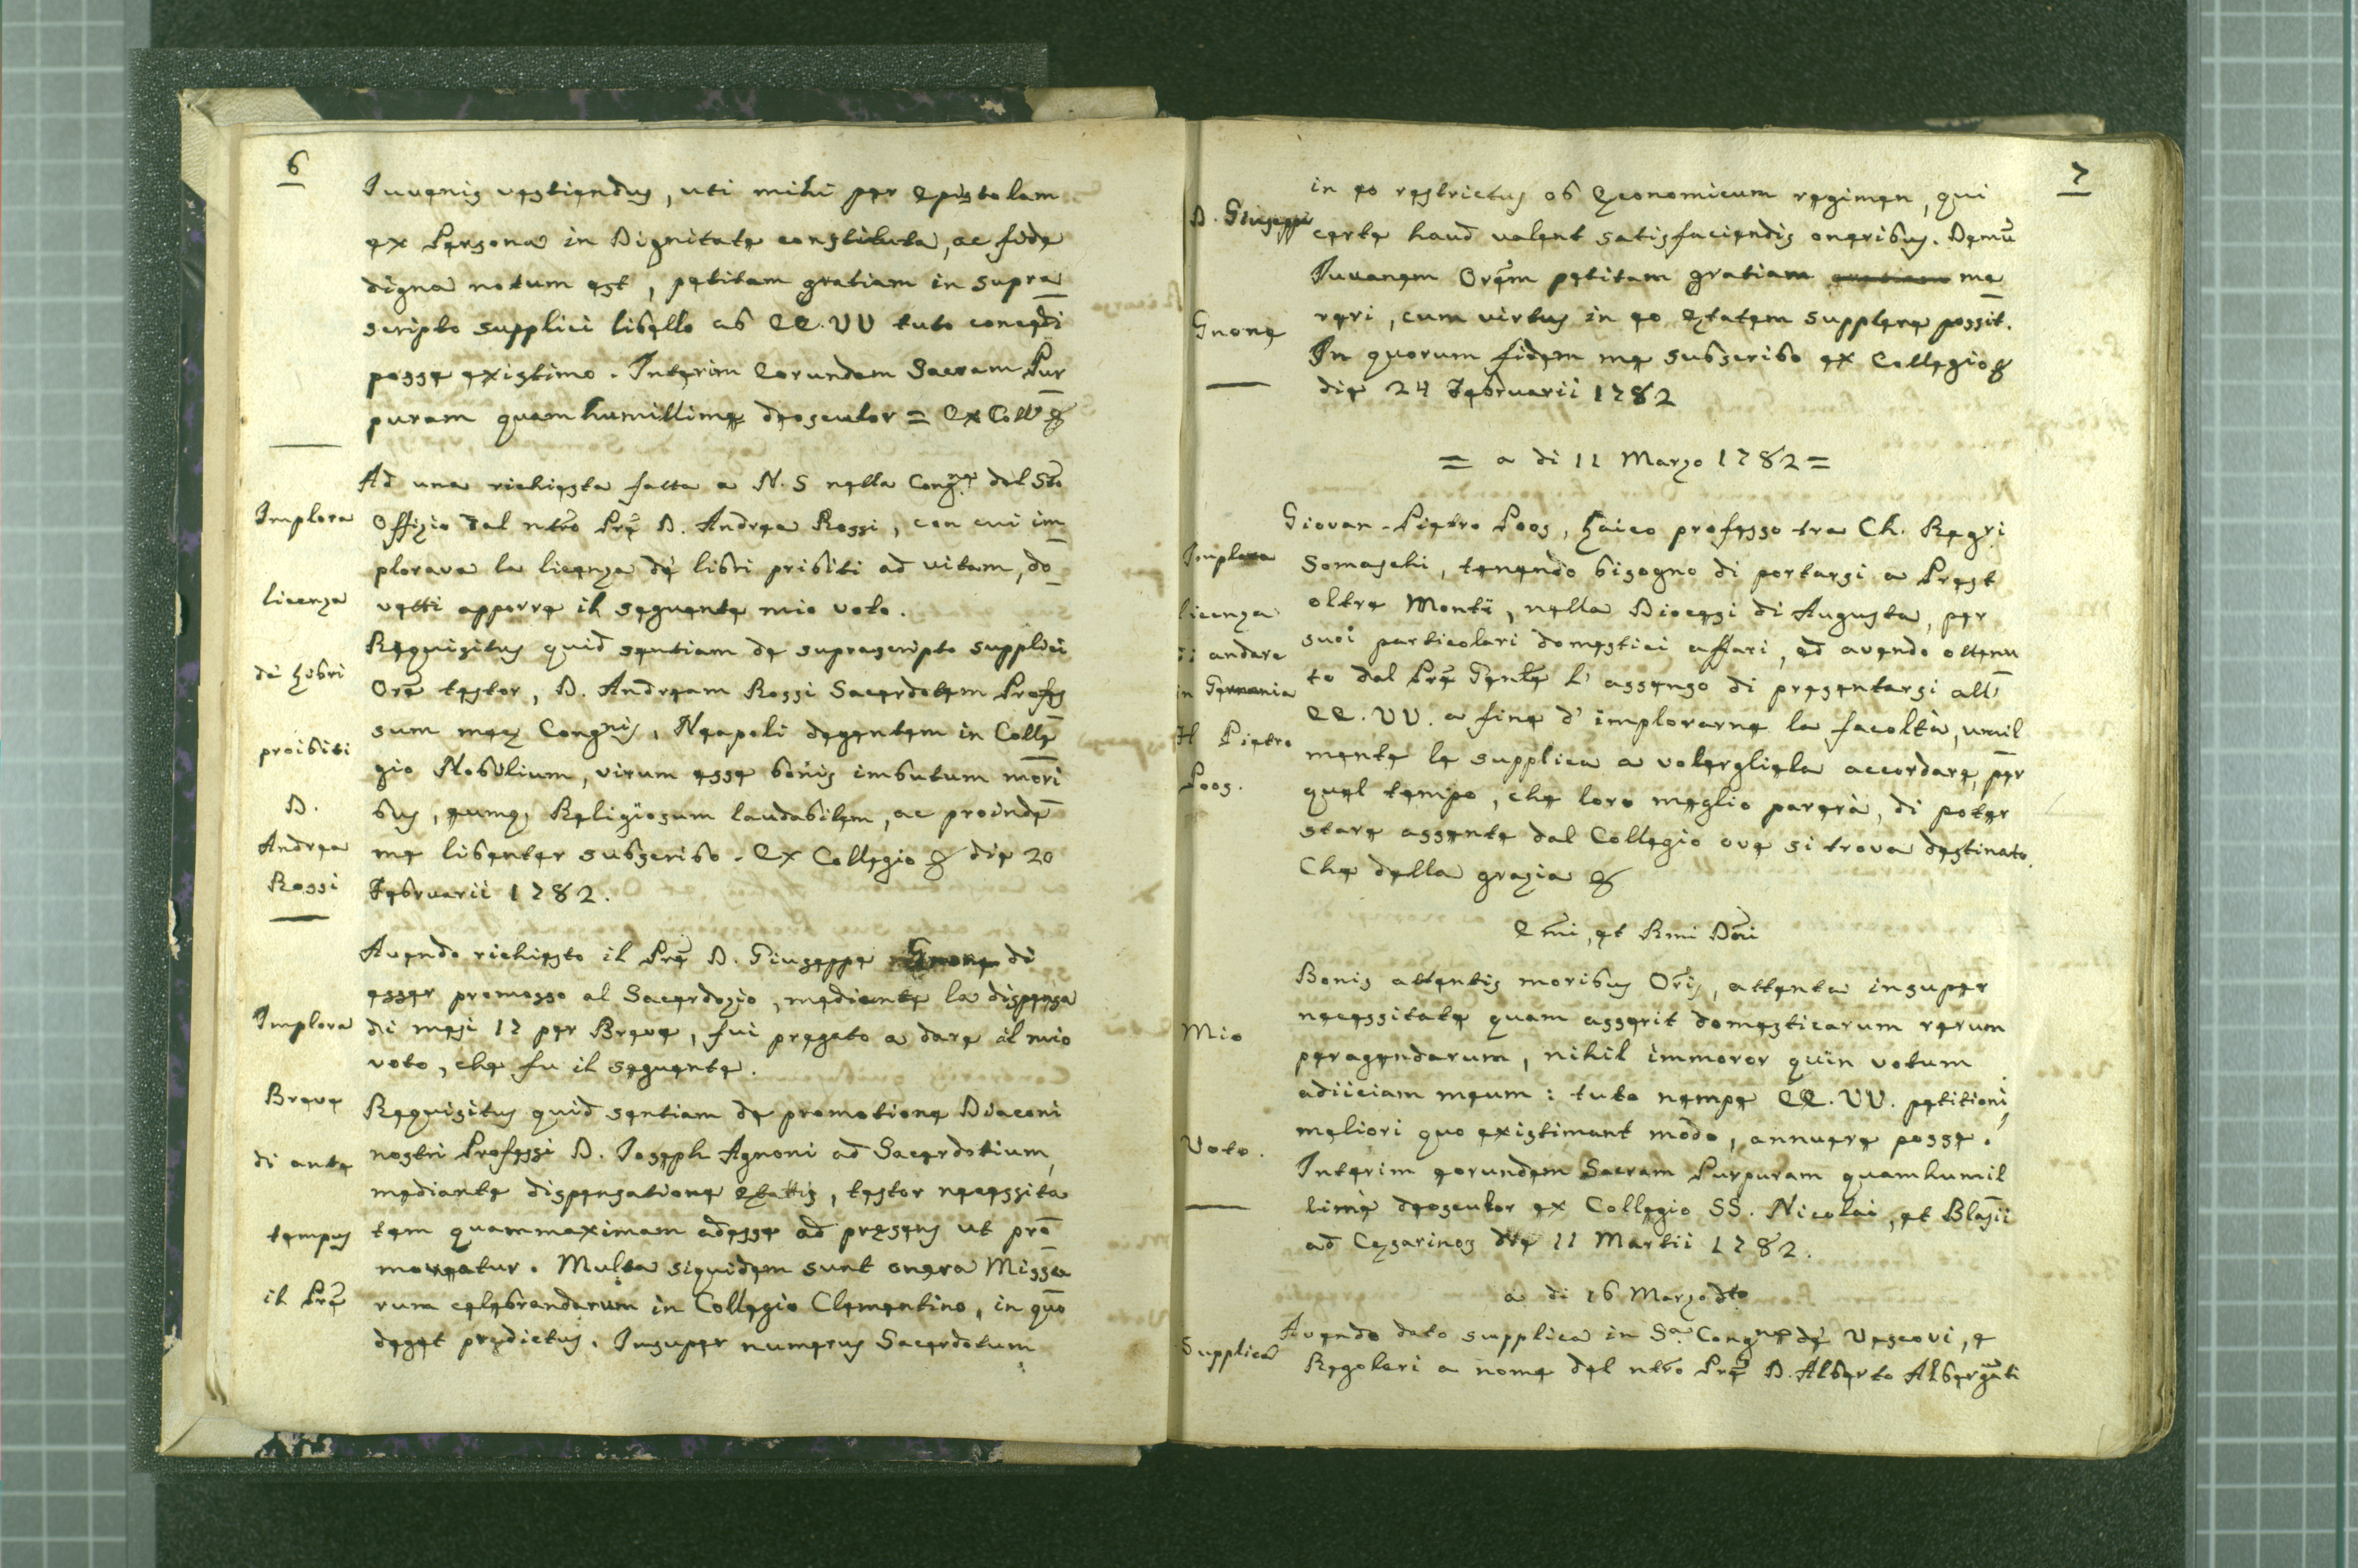 6
Iuvenis vestiendus, uti mihi per Epistolam
ex Persona in Dignitate constituta, ac fide
digna notum est, petitam gratiam in supra
scripto supplici libello ab EE. VV tuto concedi
posse existimo. Interim Eorundem Sacram Pur
puram quam humillime deosculor = Ex Coll° &
Ad una richiesta fatta a N. S nella Cong.ne del Sto
Implora
Offizio dal ntro Pre D. Andrea Rossi, con cui im
plorava la licenza de libri pribiti ad vitam, do
licenza
vetti apporre il seguente mio voto.
Requisitus quid sentiam de suprascripto supplici
de Libri
Ore testor, D. Andream Rossi Sacerdotem Profes
sum meę Congnis, Neapoli degentem in Colle
proibiti
gio Nobilium, virum esse bonis imbutum mori
D.
bus, eumq; Religiosum laudabilem, ac proinde
Andrea
me libenter subscribo. Ex Collegio & die 20
Rossi
Februarii 1782.
Avendo richiesto il Pre D. Giuseppe Gnone di
esser promosso al Sacerdozio, mediante la dispensa
Implora
di mesi 17 per Breve, fui pregato a dare il mio
voto, che fu il seguente.
Breve
Requisitus quid sentiam de promotione Diaconi
di ante
nostri Professi D. Ioseph Agnoni ad Sacerdotium,
mediante dispensatione ętatis, testor necessita
tempus
tem quammaximam adesse ad pręsens ut pro
moveatur. Multa siquidem sunt onera Missa
il Pre
rum celebrandarum in Collegio Clementino, in quo
deget prędictus. Insuper numerus Sacerdotum
7
in eo restrictus ob Economicum regimen, qui
D. Giuseppe
certe haud valent satisfaciendis oneribus. Demu
Iuvenem Orem petitam gratiam gratiam me
Gnone
reri, cum virtus in eo ętatem supplere possit.
In quorum fidem me subscribo ex Collegio &
die 24 Februarii 1782
= a di 11 Marzo 1782 =
Giovan-Pietro Poos, Laico professo tra Ch. Regri
Implora
Somaschi, tenendo bisogno di portarsi a Prest
licenza
oltre Monti, nella Diocesi di Augusta, per
di andare
suoi particolari domestici affari, ed avendo ottenu
in Germania
to dal Pre Gente l' assenso di presentarsi all'
EE. VV. a fine d' implorarne la facoltà, umil
Pietro
mente le supplica a volergliela accordare, per
Poos.
quel tempo, che loro meglio parerà, di poter
stare assente dal Collegio ove si trova destinato.
Che della grazia &
Emi, et Rmi Dni
Bonis attentis moribus Oris, attenta insuper
necessitate quam asserit domesticarum rerum
Mio
peragendarum, nihil immoror quin votum
adiiciam meum: tuto nempe EE. VV. petitioni,
meliori quo existimant modo, annuere posse.
Voto.
Interim eorundem Sacram Purpuram quamhumil
lime deosculor ex Collegio SS. Nicolai, et Blasii
ad Cęsarinos die 11 Martii 1782.
a di 16 Marzo dto
Avendo dato supplica in Sa. Congne de Vescovi, e
Supplica
Regolari a nome del ntro Pre D. Alberto Albergati